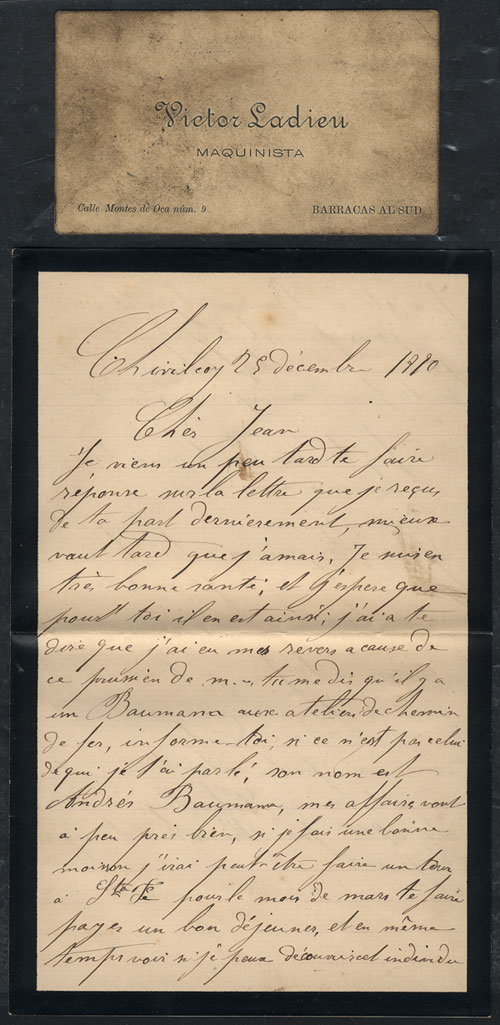 Victor Ladieu
MAQUINISTA
Calle Montes de Oca núm. 9
BARRACAS AL SUD.
Chivilcoy 25 décembre 1890
Cher Jean
Je viens un peu tard te faire
réponse sur la lettre que je reçus
de ta part dernièrement, mieux
vaut tard que j'amais. Je suis en
très bonne santé, et j'espere que
pour toi il en est ainsi; j'ai a te
dire que j'ai eu mes revers a cause de
ce prussien de m... tu me dis qu'il y a
un Baumann aux ateliers de chemin
de fer, informe-toi, si ce n'est pas celui
de qui je t'ai parlé, son nom est
Andrés Baumann, mes affaires vont
à peu près bien, si je fais une bonne
moisson j'irai peut-être faire un tour
à Sta Fe pour le mois de mars te faire
payer un bon déjeuner, et en même
temps voir si je peux découvrir cet individu